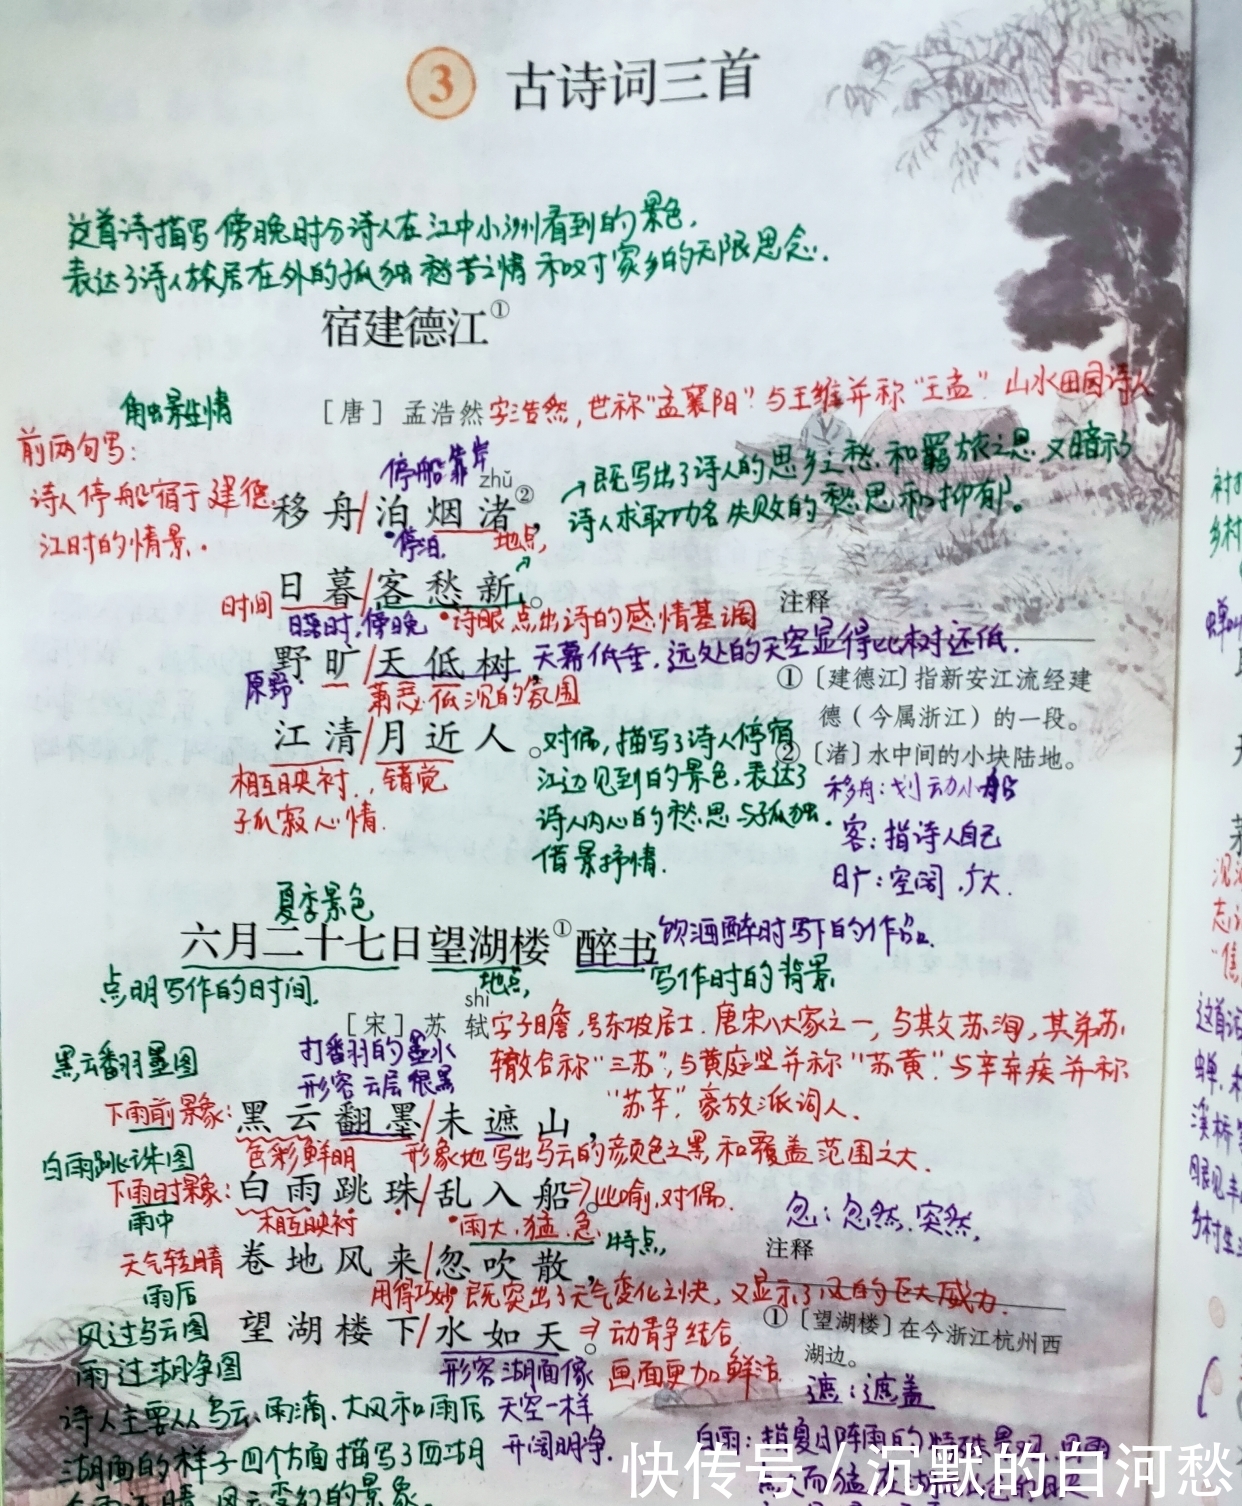 3 古诗词三首
这首诗描写傍晚时分诗人在江中小洲看到的景色.
表达了诗人旅居在外的孤独愁苦之情和对家乡的无限思念.
宿建德江①
触景生情
[唐] 孟浩然 字浩然,世称“孟襄阳”.与王维并称“王孟”.山水田园诗人
前两句写:
诗人停船宿于建德
江时的情景.
停船靠岸
zhǔ
移舟/泊烟渚②,
停泊. 地点,
既写出了诗人的思乡之愁.和羁旅之思.又暗示了
诗人求取功名失败的愁思和抑郁。
日暮/客愁新。
时间
日落时,傍晚
诗眼点出诗的感情基调
野旷/天低树,
天幕低垂.远处的天空显得比树还低.
原野
低沉的氛围
江清/月近人。
相互映衬. 错觉
孤寂心情.
对偶,描写了诗人停宿
江边见到的景色,表达了
诗人内心的愁思与孤独.
借景抒情.
注释
①〔建德江〕指新安江流经建
德（今属浙江）的一段。
②〔渚〕水中间的小块陆地。
移舟:划动小船
客:指诗人自己
旷:空阔.广大.
夏季景色
六月二十七日望湖楼①醉书
饮酒醉时写下的作品.
点明写作的时间.
地点,
写作时的背景
shì
[宋] 苏轼 字子瞻,号东坡居士.唐宋八大家之一,与其父苏洵,其弟苏
辙合称“三苏”,与黄庭坚并称“苏黄”.与辛弃疾并称
“苏辛”,豪放派词人.
黑云翻墨图
打翻的墨水
形容云层很黑
下雨前景象:
黑云翻墨/未遮山,
色彩鲜明 形象地写出乌云的颜色之黑和覆盖范围之大.
白雨跳珠图
下雨时景象:
雨中
白雨跳珠/乱入船。
⇒比喻,对偶.
相互映衬
雨大,猛,急
特点,
天气转晴
卷地风来/忽吹散,
用得巧妙 既突出了天气变化之快,又显示了风的巨大威力.
雨后
风过乌云图
雨过湖净图
望湖楼下/水如天。
⇒动静结合
画面更加鲜活
形容湖面像
天空一样
开阔明净.
诗人主要从乌云、雨滴、大风和雨后
湖面的样子四个方面描写了西湖
忽:忽然.突然,
注释
①〔望湖楼〕在今浙江杭州西
湖边。
遮:遮盖
白雨:指夏日阵雨的
快传号 / 沉默的白河愁